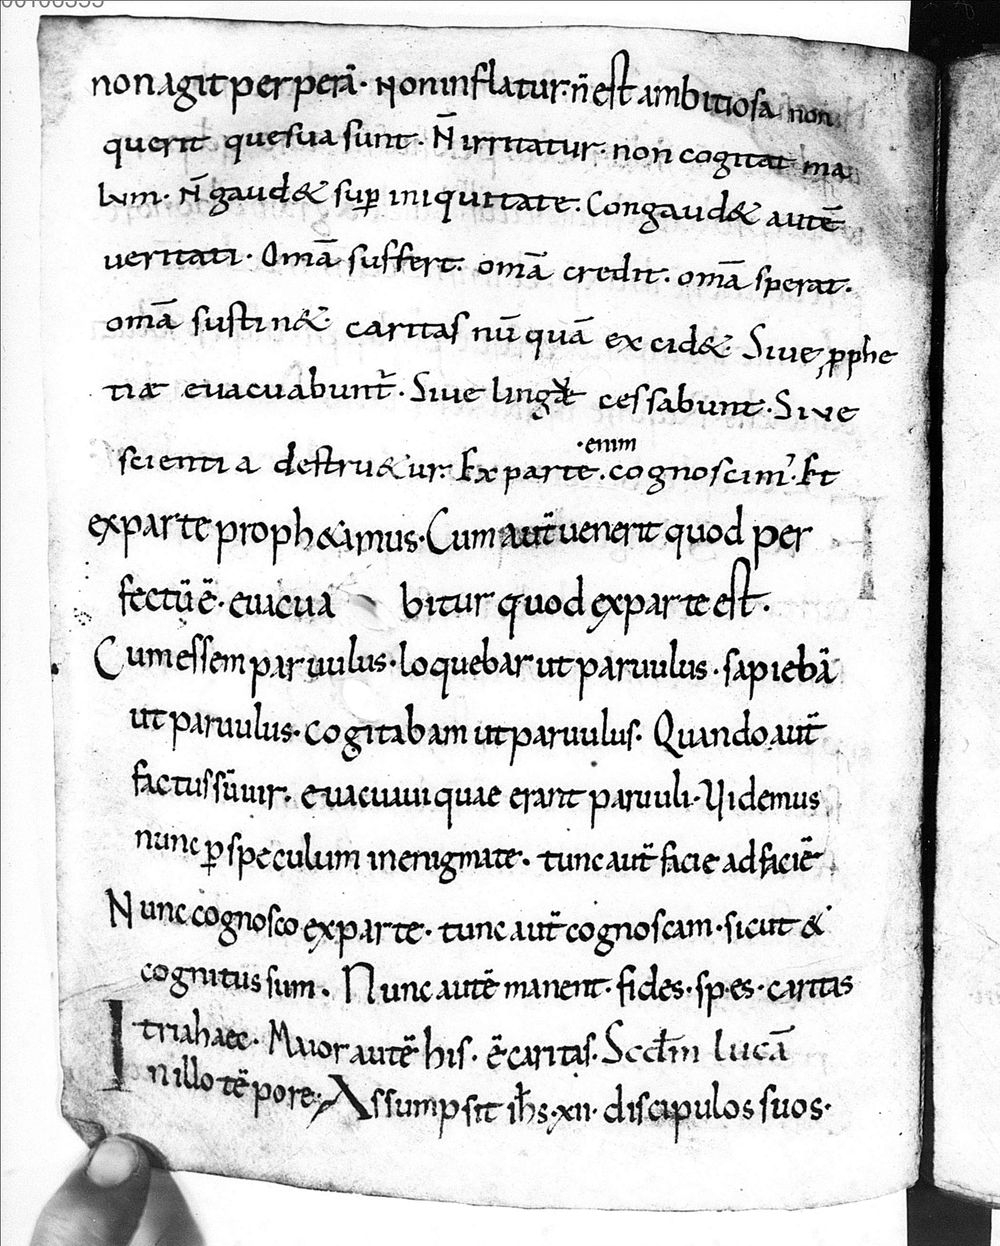 non agit perperā · Non inflatur · n̄ est ambitiosa non
querit que sua sunt · N̄ irritatur · non cogitat ma
lum · N̄ gaud& sup̲ iniquitate · Congaud& autē
ueritati · Omā suffert · omā credit · omā sperat ·
omā sustin& · caritas nū quā excid& · Siue p̲phe
tiæ euacuabunt̄ · Siue linguæ cessabunt · Siue
scientia destru&ur · Ex parte · cognoscim᾽ · Et
· enim
ex parte proph&amus · Cum aut̄ uenerit quod per
fectū ē · euacua bitur quod ex parte est ·
Cum essem paruulus · loquebar ut paruulus · sapiebā
ut paruulus · cogitabam ut paruulus · Quando aut̄
factus sū uir · euacuaui quae erant paruuli · Uidemus
nunc p̲ speculum in enigmate · tunc aut̄ facie ad faciē
Nunc cognosco ex parte · tunc aut̄ cognoscam · sicut &
cognitus sum · Nunc autē manent · fides · spes · caritas
tria haec · Maior autē his · ē caritas · Scd̄m Lucā
In illo tēpore · Assumpsit ih̄s · xii · discipulos suos ·